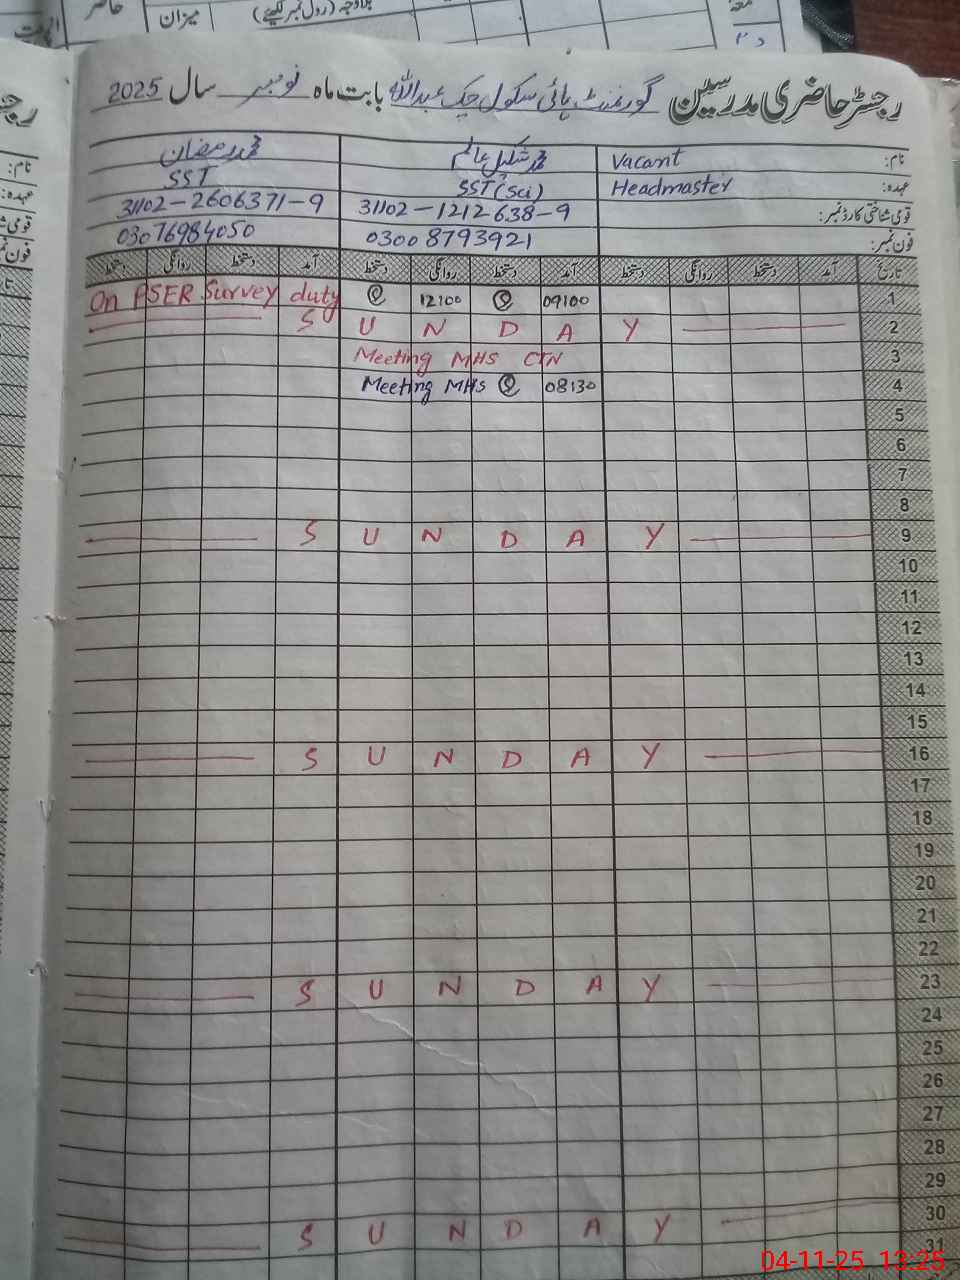 حاضر
میزان
بلاوجہ (رول نمبر لکھیئے)
رجسٹر حاضری مدرسین گورنمنٹ ہائی سکول چک عبداللہ بابت ماہ نومبر سال 2025
نام: Vacant محمد شکیل عالم محمد رمضان
عہدہ: Headmaster SST (Sci) SST
قومی شناختی کارڈ نمبر: 31102-1212638-9 31102-2606371-9
فون نمبر: 03008793921 03076984050
تاریخ آمد دستخط روانگی دستخط آمد دستخط روانگی دستخط آمد دستخط روانگی دستخط
On PSER Survey duty 12:00 09:00 1
S U N D A Y 2
Meeting MHS CTN 3
Meeting MHS 08:30 4
5
6
7
8
S U N D A Y 9
10
11
12
13
14
15
S U N D A Y 16
17
18
19
20
21
22
S U N D A Y 23
24
25
26
27
28
29
S U N D A Y 30
31
04-11-25 13:25